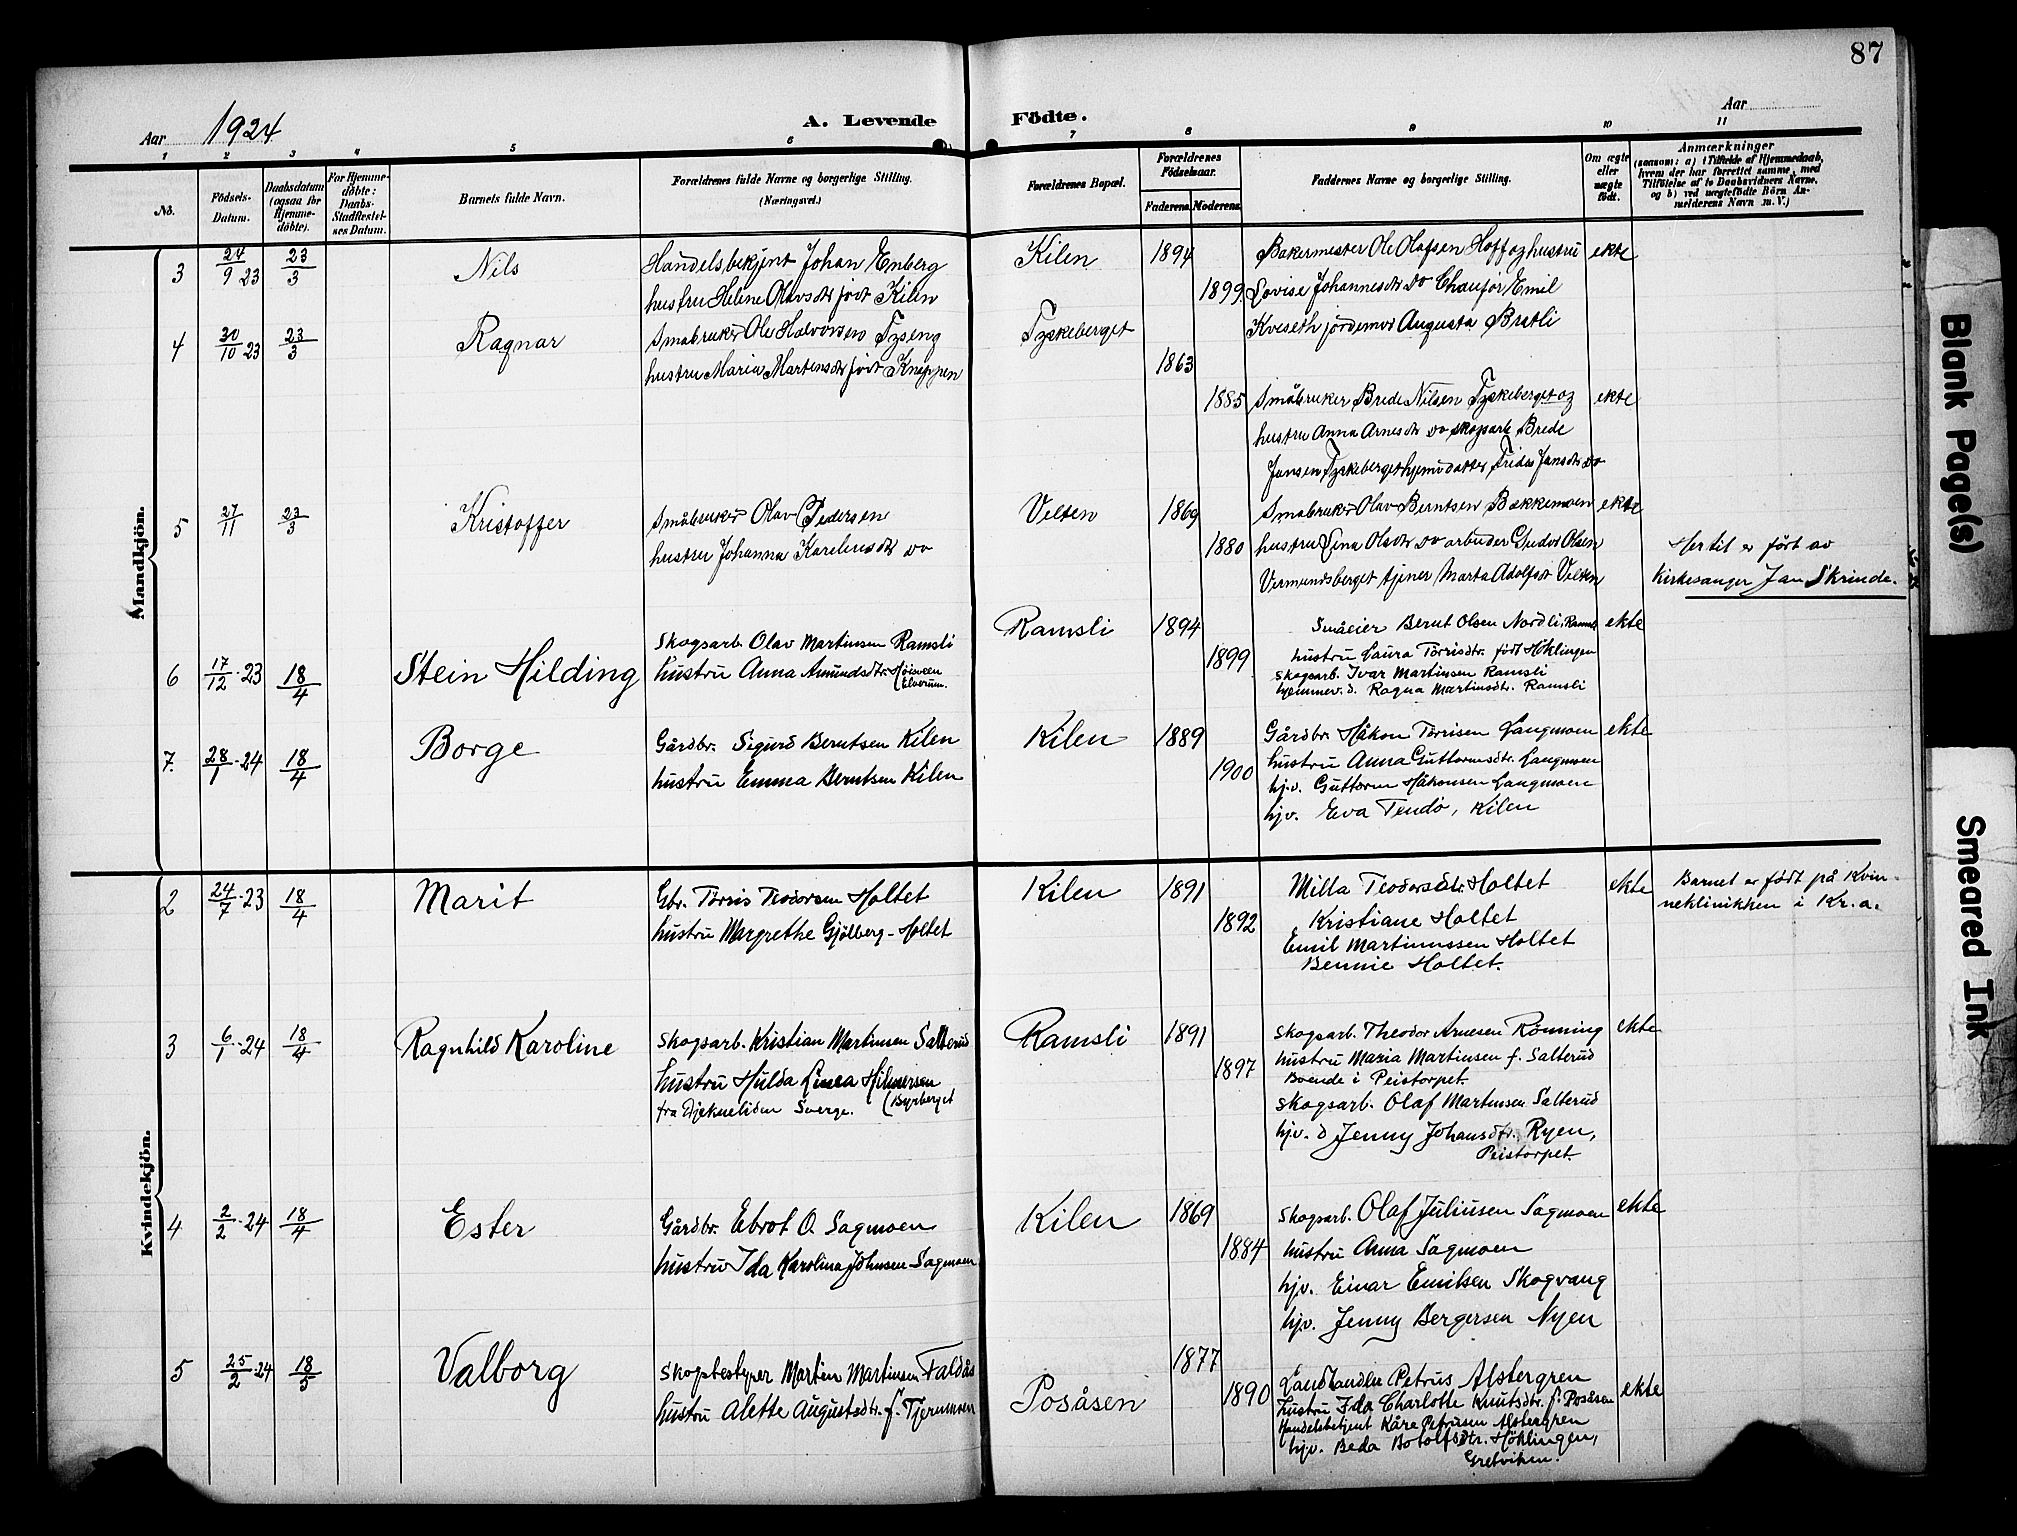 87
Aar 1924
A. Levende
Födte.
Aar
1 2 3 4 5 6 7 8 9 10 11
No.
Födsels-
Datum.
Daabsdatum
(ogsaa för
Hjemme-
döbte).
For Hjemme-
döbte:
Daabs-
Stadfæstel-
ses Datum.
Barnets fulde Navn.
Forældrenes fulde Navne og borgerlige Stilling.
(Næringsvei.)
Forældrenes Bopæl.
Forældrenes
Födselsaar.
Faderens. Moderens.
Faddernes Navne og borgerlige Stilling.
Om ægte
eller
uægte
födt.
Anmærkninger
(saasom: a) i Tilfælde af Hjemmedaab,
hvem der har forrettet samme, med
Tilföielse af to Daabsvidners Navne,
og b) ved uægtefödte Börn An-
melderens Navn m. V.)
Mandkjön.
3 24/9 23 23/3 Nils
Handelsbekjent Johan Enberg
hustru Helene Olavsdtr født Kilen
Kilen 1894
1899
Bakermester Ole Olafsen Hoff og hustru
Lovise Johannesdtr do Chaufør Emil
Kveseth jordemor Augusta Bratli
ekte
4 30/10 23 23/3 Ragnar
Småbruker Ole Halvorsen Tyseng
hustru Maria Martensdtr født Knappen
Tyskeberget
1863
1885
Småbruker Brede Nilsen Tyskeberget og
hustru Anna Arnesdtr do skogsarb Brede
Jansen Tyskeberget hjemv datter Frida Jansdtr do
ekte
5 27/11 23/3 Kristoffer
Småbruker Olav Pedersen
hustru Johanna Kareliusdtr do
Velten 1869
1880
Småbruker Olav Berntsen Bakkemoen
hustru Lina Olsdtr do arbeider Gudor Olsen
Vermundsberget tjener Marta Adolfsdt Velten
ekte
Her til er ført av
kirkesanger Jan Skrinde.
6 17/12-23 18/4 Stein Hilding
Skogsarb. Olav Martinsen Ramsli
hustru Anna Amundsdtr. Høiveen
Elverum.
Ramsli 1894
1899
Småeier Bernt Olsen Nordli, Ramsli
hustru Laura Törrisdtr. født Höklingen
skogsarb. Ivar Martinsen Ramsli
hjemmev. d. Ragna Martinsdtr. Ramsli
ekte
7. 28/1-24 18/4 Borge
Gårdbr. Sigurd Berntsen Kilen
hustru Emma Berntsen Kilen
Kilen 1889
1900
Gårdbr. Håkon Törrisen Langmoen
hustru Anna Guttormsdtr. Langmoen
hj.v. Guttorm Håkonsen Langmoen
hjv. Eva Tendö, Kilen
ekte
Kvindekjön.
2 24/7-23 18/4 Marit
Gbr. Törris Teodorsen Holtet
hustru Margrethe Gjölberg-Holtet
Kilen 1891
1892
Milla Teodorsdtr. Holtet
Kristiane Holtet
Emil Martinussen Holtet
Bennie Holtet.
ekte
Barnet er født på Kvin-
neklinikken i Kr.a.
3 6/1-24 18/4 Ragnhild Karoline
Skogsarb. Kristian Martinsen Salterud
hustru Hulda Linea Hilmersen
fra Djekneliden Sverge. (Byrberget
Ramsli 1891
1897
Skogsarb. Theodor Arnesen Rönning
hustru Maria Martinsen f. Salterud
Boende i Peistorpet.
skogsarb. Olaf Martinsen Salterud
hjv. d Jenny Johansdtr. Ryen,
Peistorpet.
ekte
4 2/2-24 18/4 Ester
Gårdbr. Ebrot O. Sagmoen
hustru Ida Karolina Johnsen Sagmoen
Kilen 1869
1884
Skogsarb. Olaf Juliusen Sagmoen
hustru Anna Sagmoen
hjv. Einar Emilsen Skogvang
hjv. Jenny Bergersen Nyen
ekte
5 25/2-24 18/5 Valborg
Skogbestyrer Martin Martinsen Faldås
hustru Alette Augustsdtr. f. Tjernmoen
Posåsen
1877
1890
Landhandler Petrus Alstergren
hustru Ida Charlotte Knutsdtr. f. Posåsen
Handelsbetjent Kåre Petrusen Alstergren
hjv. Beda Botolfsdtr. Höklingen,
Gretviken.
ekte
Blank Page(s)
Smeared Ink